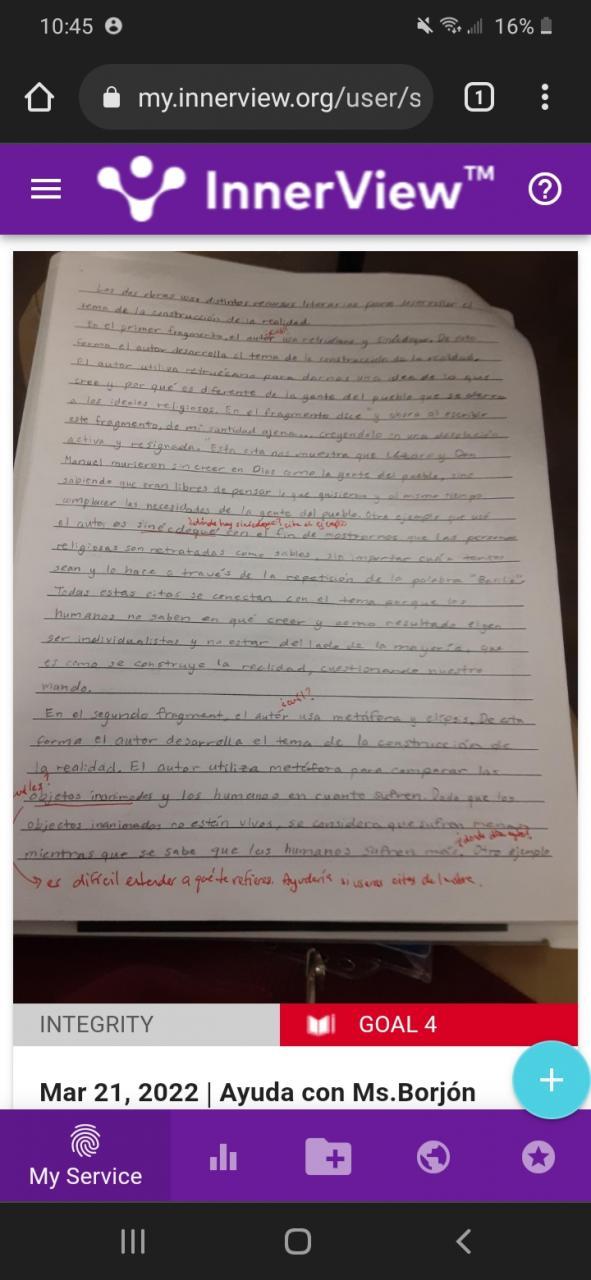 10:45
16%
my.innerview.org/user/s
1
InnerView™
Las dos obras usan distintos recursos literarios para desarrollar el
tema de la construcción de la realidad.
¿cuál?
En el primer fragmento, el autór usa retruécano y sinécdoque. De esta
forma el autor desarrolla el tema de la construcción de la realidad.
El autor utiliza retruécano para darnos una idea de lo que
cree y por qué es diferente de la gente del pueblo que se aferra
a los ideales religiosos. En el fragmento dice "y ahora al escribir
este fragmento, de mi santidad ajena... creyéndolo en una desolación
activa y resignada." Esta cita nos muestra que Lázaro y Don
Manuel murieron sin creer en Dios como la gente del pueblo, sino
sabiendo que eran libres de pensar lo que quisieran y al mismo tiempo
complacer las necesidades de la gente del pueblo. Otro ejemplo que usó
¿dónde hay sinécdoque? cita el ejemplo
el autor es sinécdoque con el fin de mostrarnos que las personas
religiosas son retratadas como sabias, sin importar cuán
sean y lo hace a través de la repetición de la palabra
Todas estas citas se conectan con el tema porque los
humanos no saben en qué creer y como resultado eligen
ser individualistas y no estar del lado de la mayoría, que
es como se construye la realidad, cuestionando nuestro
mundo.
¿cuál?
En el segundo fragment, el autór usa metáfora y De esta
forma el autor desarrolla el tema de la construcción de
la realidad. El autor utiliza metáfora para comparar los
objetos inanimados y los humanos en cuanto sufren. Dado que los
objectos inanimados no están vivos, se considera que sufran menos
mientras que se sabe que los humanos sufren más. Otro ejemplo
→ es difícil entender a qué te refieres. Ayudaría si usaras citas de la obra.
INTEGRITY
GOAL 4
Mar 21, 2022 | Ayuda con Ms.Borjón
+
My Service